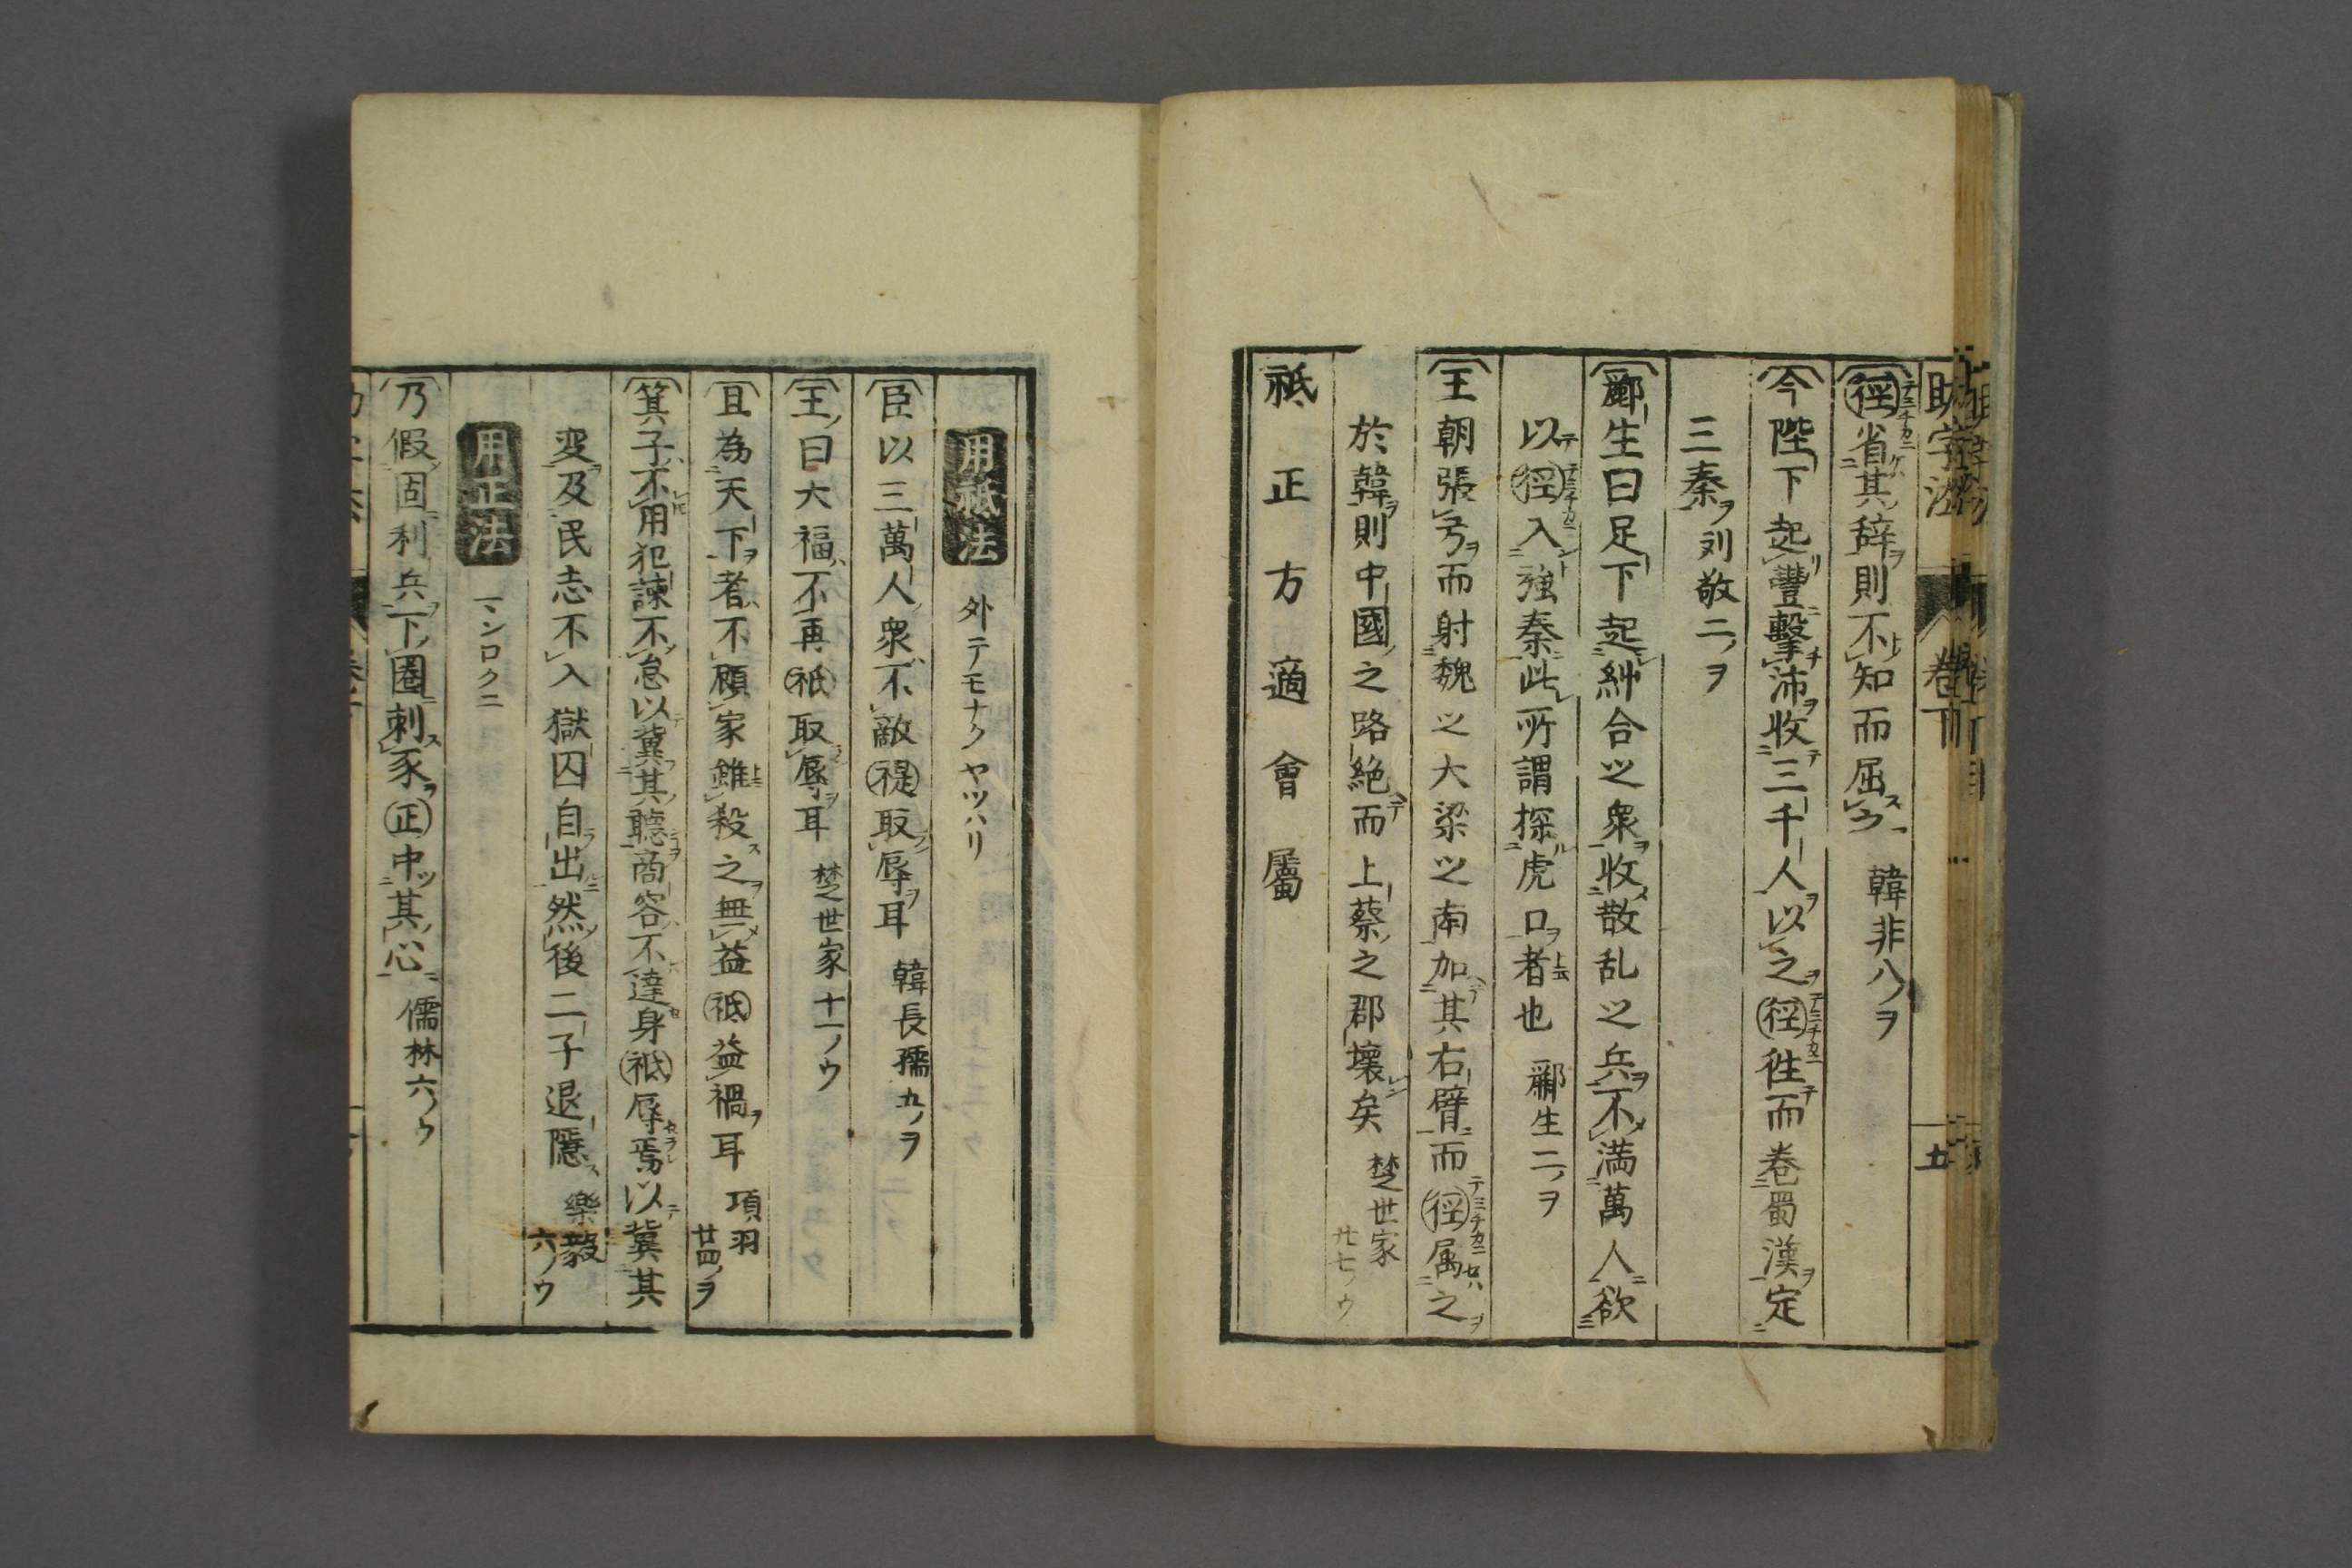 助字法 卷下 五
徑省其辞則不知而屈 韓非八ノヲ
今陛下起豐擊沛收三千人以之徑徃而卷蜀漢定
三秦 刘敬二ノヲ
酈生曰足下起糾合之衆收散乱之兵不満萬人欲
以徑入強秦此所謂探虎口者也 酈生二ノヲ
王朝張弓而射魏之大梁之南加其右臂而徑属之
於韓則中國之路絶而上蔡之郡壞矣 楚世家 廿七ノウ
祗正方適會屬
用祗法 外テモナクヤツハリ
臣以三萬人衆不敵禔取辱耳 韓長孺九ノヲ
王曰大福不再祗取辱耳 楚世家十一ノウ
且為天下者不顧家雖殺之無益祗益禍耳 項羽 廿四ノヲ
箕子不用犯諫不怠以冀其聽商容不達身祗辱焉以冀其
変及民志不入獄囚自出然後二子退隱 樂毅 六ノウ
用正法 マンロクニ
乃假固利兵下圈刺豕正中其心 儒林六ノウ